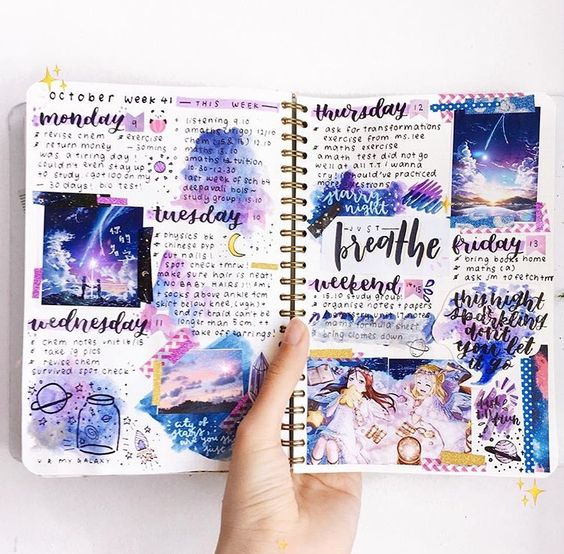 October week 41
THIS WEEK
monday 9
# revise chem # exercise
# return money - 30 mins
was a tiring day!
couldn't even stay up
to study. i got 100 on my
30 days! bio test!
listening 9.10
amaths (trigo) 12/10
chem (15 & 16) 13/10
maths (a) 13.10
amaths tuition
10.30-12.30
last week of sch b4
deepavali hols~
study group! 15.10
tuesday 10
# physics bk
# chinese pyp
# cut nails!
spot check tmrw!
make sure hair is neat
(NO BABY HAIRS!!! AM)
# socks above ankle 4cm
skirt below knee (ugh)
end of braid can't be
longer than 5cm
take off earrings!
你的名字
wednesday 11
# chem notes unit 14/15
# take ig pics
# revise chem
survived spot check!
U R MY GALAXY
city of
stars
are you shining
just
thursday 12
# ask for transformations
exercise from ms. lee
# maths exercise
amath test did not go
well at all T.T i wanna
cry. should've practiced
more questions
starry
night
JUST
breathe
friday 13
# bring books home
# maths (a)
# ask jm to fetch tm
weekend
15.10 study group!
organise notes & papers
maths formula sheet
bring clothes down
this night
is sparkling
don't
you let
it go